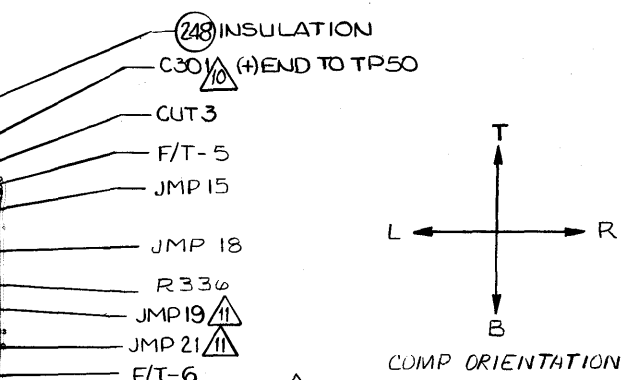 248 INSULATION
C301 10 (+) END TO TP50
CUT 3
F/T-5
JMP 15
JMP 18
R336
JMP 19 11
JMP 21 11
F/T-6
T
L R
B
COMP ORIENTATION